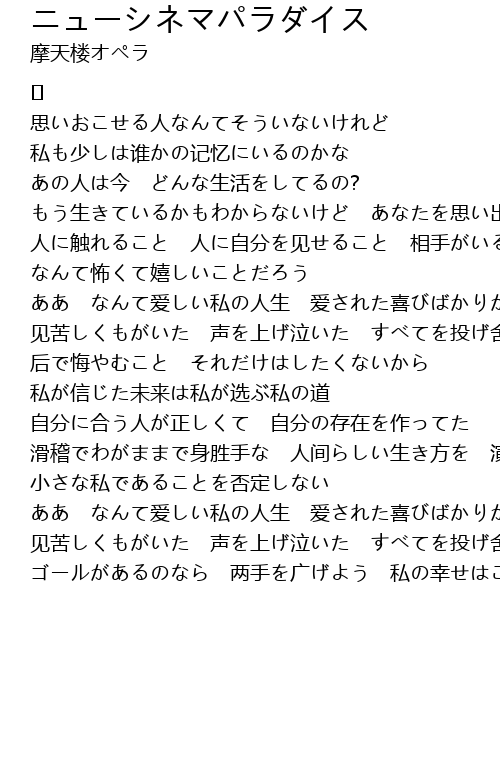 ニューシネマパラダイス
摩天楼オペラ
[]
思いおこせる人なんてそういないけれど
私も少しは谁かの记忆にいるのかな
あの人は今　どんな生活をしてるの?
もう生きているかもわからないけど　あなたを思い出
人に触れること　人に自分を见せること　相手がいる
なんて怖くて嬉しいことだろう
ああ　なんて爱しい私の人生　爱された喜びばかりが
见苦しくもがいた　声を上げ泣いた　すべてを投げ舍
后で悔やむこと　それだけはしたくないから
私が信じた未来は私が选ぶ私の道
自分に合う人が正しくて　自分の存在を作ってた
滑稽でわがままで身胜手な　人间らしい生き方を　演
小さな私であることを否定しない
ああ　なんて爱しい私の人生　爱された喜びばかりが
见苦しくもがいた　声を上げ泣いた　すべてを投げ舍
ゴールがあるのなら　两手を广げよう　私の幸せはこ